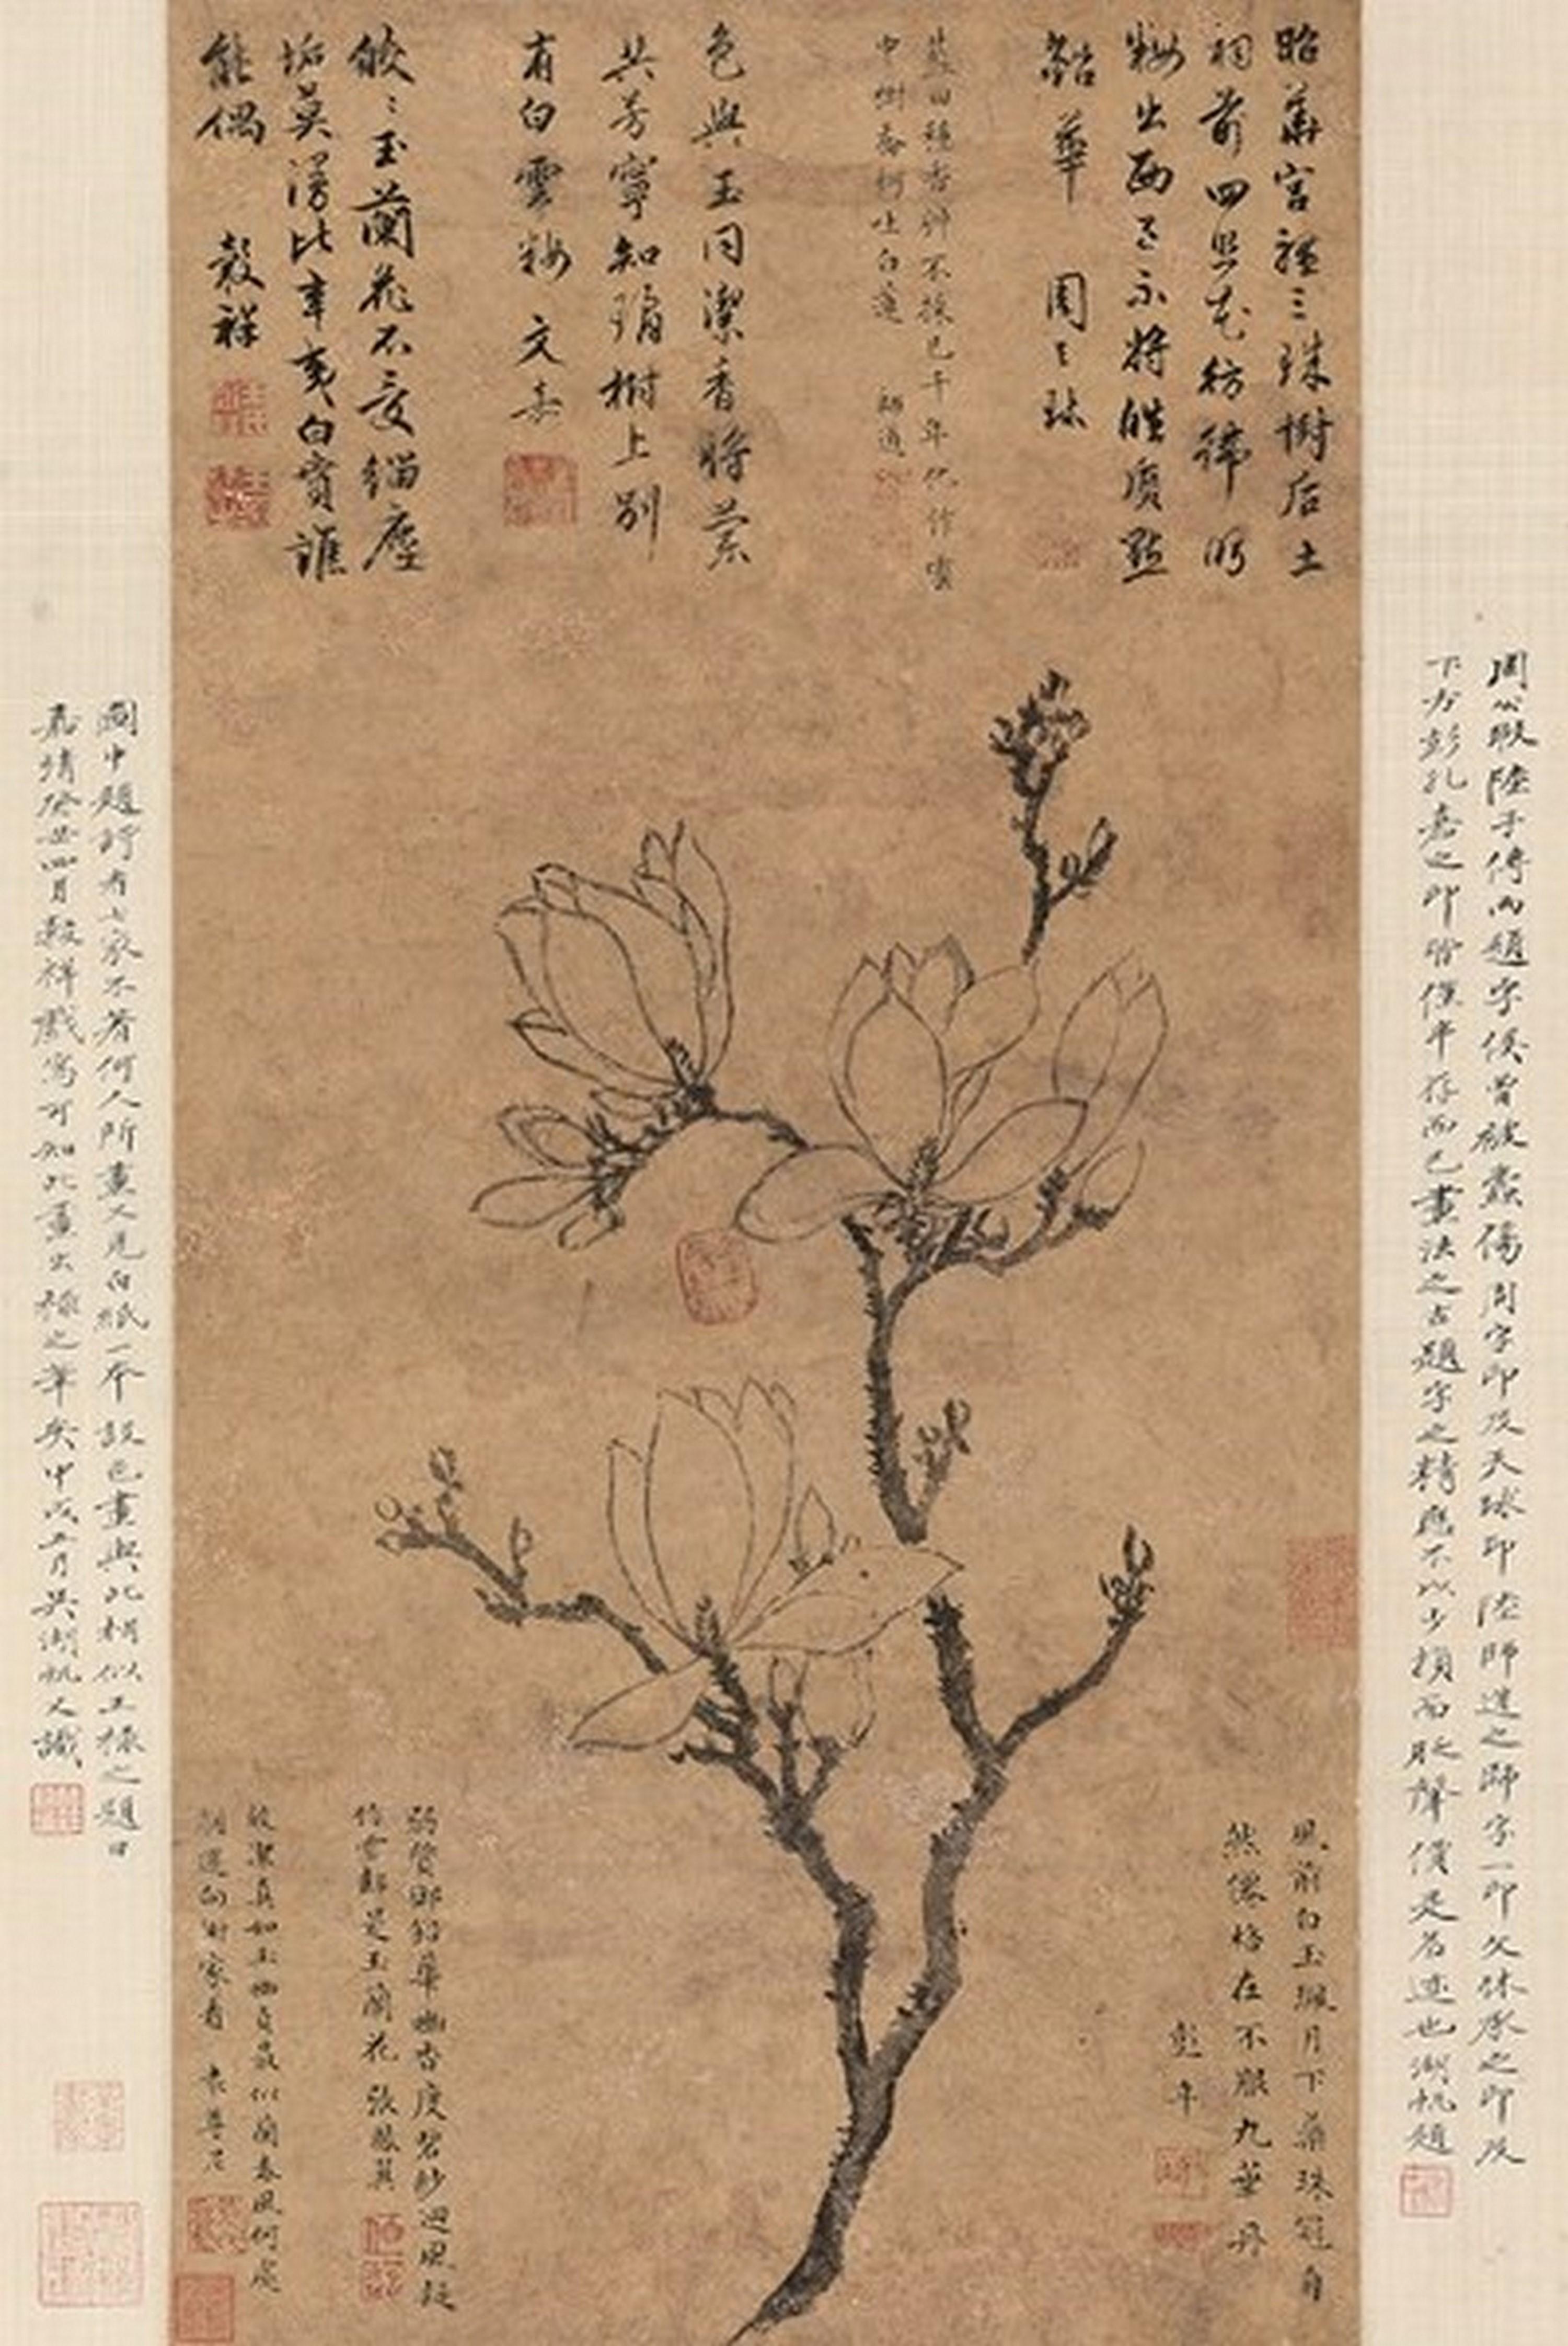 周公瑕陸子傳兩題字侯曾被蠹傷周字印及天球印陸師道之師字一印文休承之印及
下方彭孔嘉之印皆僅半存而已畫法之古題字之精應不以少損而貶聲價是名迹也湖帆題
昭華宮裡三珠樹后土
祠前四照花彷彿明
妝出西子不將皓質點
鉛華 周天球
藍田種香艸不採已千年化作雲
中樹喬柯吐白蓮 師道
色與玉同潔香將蘭
共芳寧知瓊樹上別
有白雲妝 文嘉
皎〻玉蘭花不受緇塵
垢莫漫比辛夷白賁誰
能偶 穀祥
風前白玉珮月下蘂珠冠自
然僊格在不服九華丹
彭年
弱質卻鉛華幽香度碧紗迴風疑
作雪都是玉蘭花 張鳳翼
皎潔真如玉幽貞最似蘭春風何處
還向謝家看 袁尊尼
圖中題詩有七家不省何人所畫又見白紙一本設色畫與此相似王祿之題曰
嘉靖癸丑四月穀祥戲寫可知此畫出祿之筆矣甲戌五月吳湖帆又識